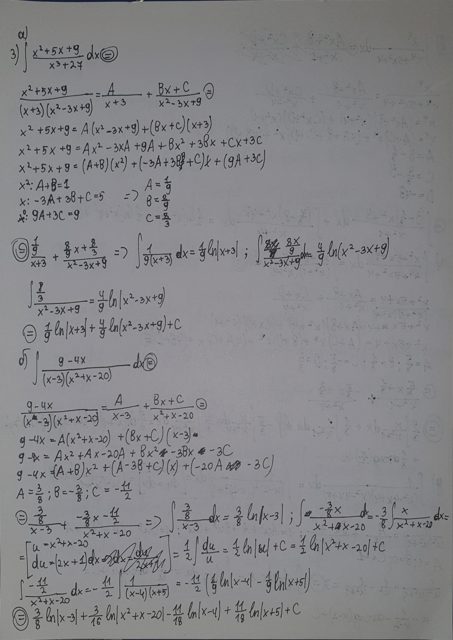 а)
3) ∫ x²+5x+9 / x³+27 dx =
x²+5x+9 / (x+3)(x²-3x+9) = A / x+3 + Bx+C / x²-3x+9 =
x²+5x+9 = A(x²-3x+9)+(Bx+C)(x+3)
x²+5x+9 = Ax²-3xA+9A+Bx²+3Bx+Cx+3C
x²+5x+9 = (A+B)(x²)+(-3A+3B+C)x+(9A+3C)
x²: A+B=1 A=1/9
x: -3A+3B+C=5 => B=8/9
x⁰: 9A+3C=9 C=8/3
= 1/9 / x+3 + 8/9 x + 8/3 / x²-3x+9 => ∫ 1 / 9(x+3) dx = 1/9 ln|x+3| ; ∫ 8x/9 / x²-3x+9 dx = 4/9 ln(x²-3x+9)
∫ 8/3 / x²-3x+9 = 4/9 ln|x²-3x+9)
= 1/9 ln|x+3|+4/9 ln(x²-3x+9)+C
б) ∫ 9-4x / (x-3)(x²+x-20) dx =
9-4x / (x-3)(x²+x-20) = A / x-3 + Bx+C / x²+x-20 =
9-4x = A(x²+x-20)+(Bx+C)(x-3)
9-4x = Ax²+Ax-20A+Bx²-3Bx -3C
9-4x = (A+B)x²+(A-3B+C)(x)+(-20A -3C)
A=3/8; B=-3/8; C=-11/2
= 3/8 / x-3 + -3/8 x - 11/2 / x²+x-20 => ∫ 3/8 / x-3 dx = 3/8 ln|x-3| ; ∫ -3/8 x / x²+x-20 dx = -3/8 ∫ x / x²+x-20 dx =
= [u=x²+x-20 du=(2x+1)dx] = 1/2 ∫ du/u = 1/2 ln|u|+C = 1/2 ln|x²+x-20|+C
∫ -11/2 / x²+x-20 dx = -11/2 ∫ 1 / (x-4)(x+5) = -11/2 (1/9 ln|x-4| - 1/9 ln|x+5|)
= 3/8 ln|x-3|+3/16 ln|x²+x-20|-11/18 ln|x-4|+11/18 ln|x+5|+C